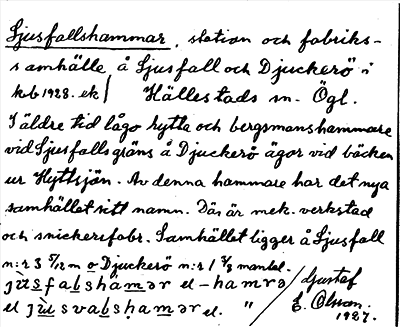 Ljusfallshammar, station och fabriks-
samhälle å Ljusfall och Djuckerö i
kb 1928. ek | Hällestads sn. Ögl.
I äldre tid lågo hytta och bergsmanshammare
vid Ljusfalls gräns å Djuckerö ägor vid bäcken
ur Hyttsjön. Av denna hammare har det nya
samhället sitt namn. Där är mek. verkstad
och snickerifabr. Samhället ligger å Ljusfall
n:r 3 5/12 m o Djuckerö n:r 1 mantal.
el - hamrə / Gustaf
el " E. Olsson.
1927.